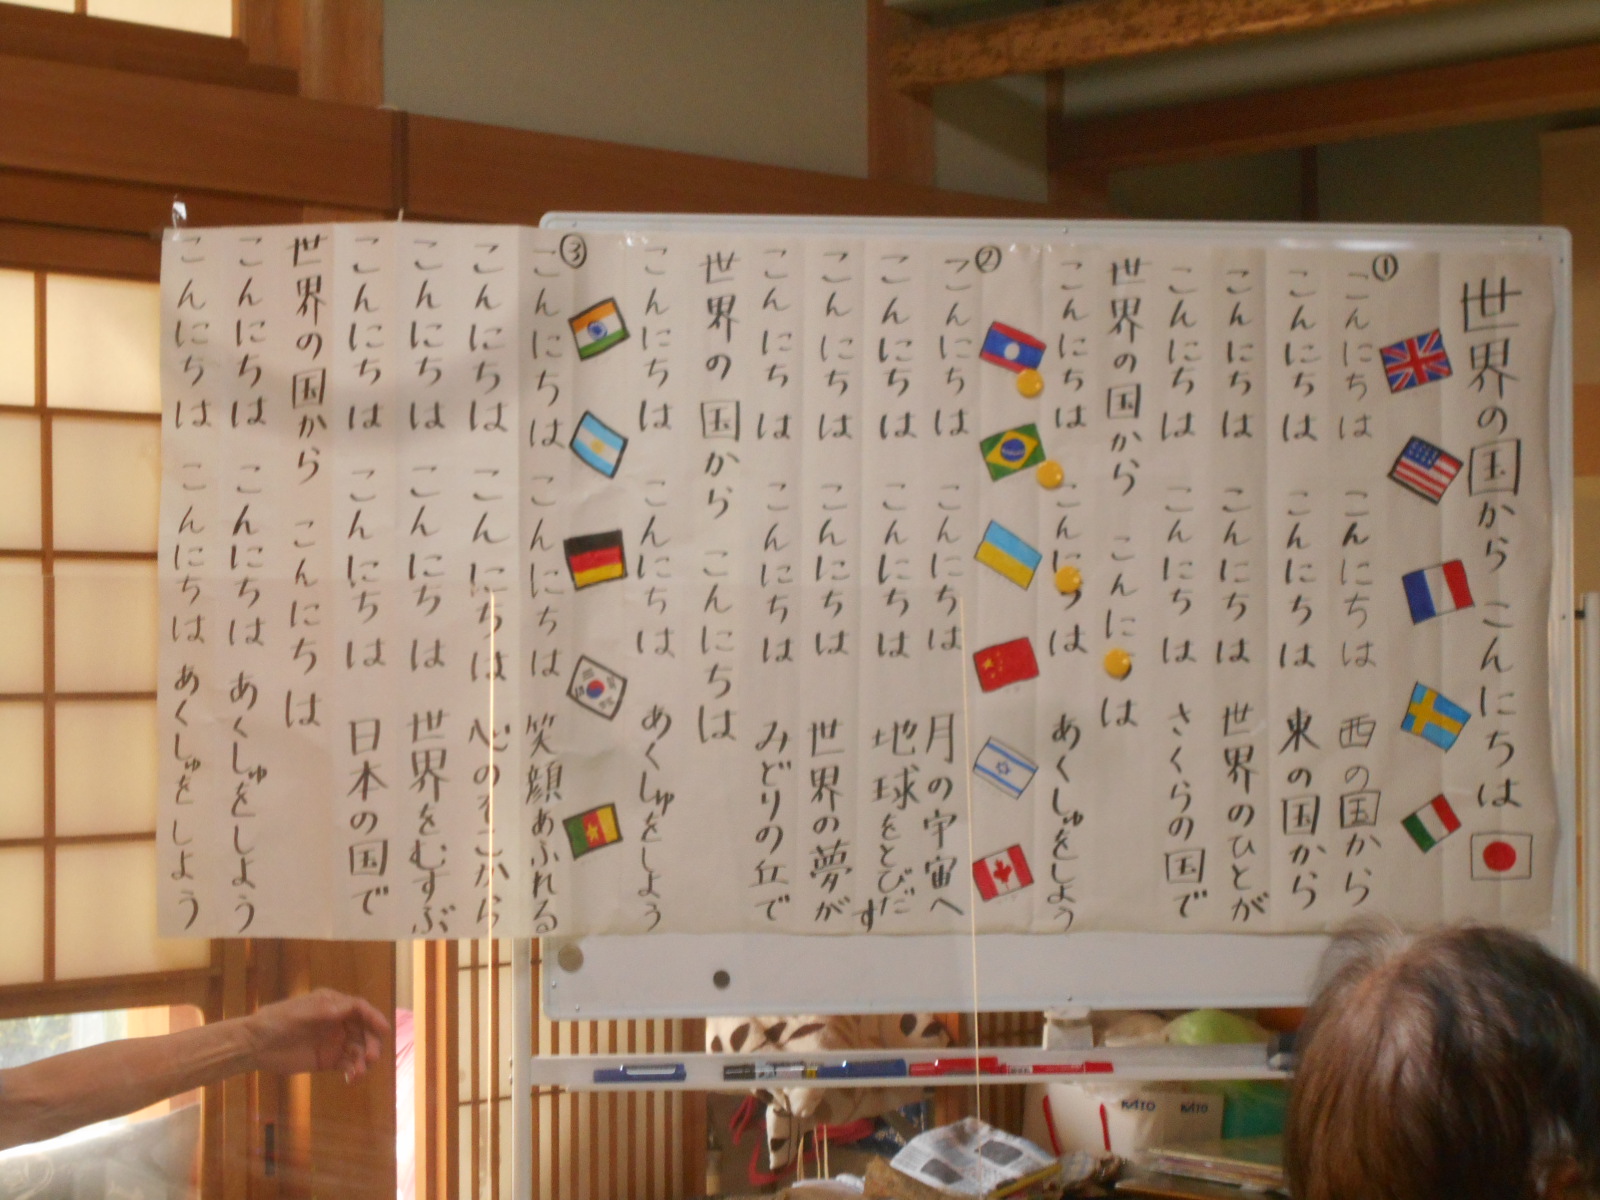 世界の国から こんにちは
①
こんにちは こんにちは 西の国から
こんにちは こんにちは 東の国から
こんにちは こんにちは 世界のひとが
こんにちは こんにちは さくらの国で
世界の国から こんにちは
こんにちは こんにちは あくしゅをしよう
②
こんにちは こんにちは 月の宇宙へ
こんにちは こんにちは 地球をとびだす
こんにちは こんにちは 世界の夢が
こんにちは こんにちは みどりの丘で
世界の国から こんにちは
こんにちは こんにちは あくしゅをしよう
③
こんにちは こんにちは 笑顔あふれる
こんにちは こんにちは 心のそこから
こんにちは こんにちは 世界をむすぶ
こんにちは こんにちは 日本の国で
世界の国から こんにちは
こんにちは こんにちは あくしゅをしよう
こんにちは こんにちは あくしゅをしよう